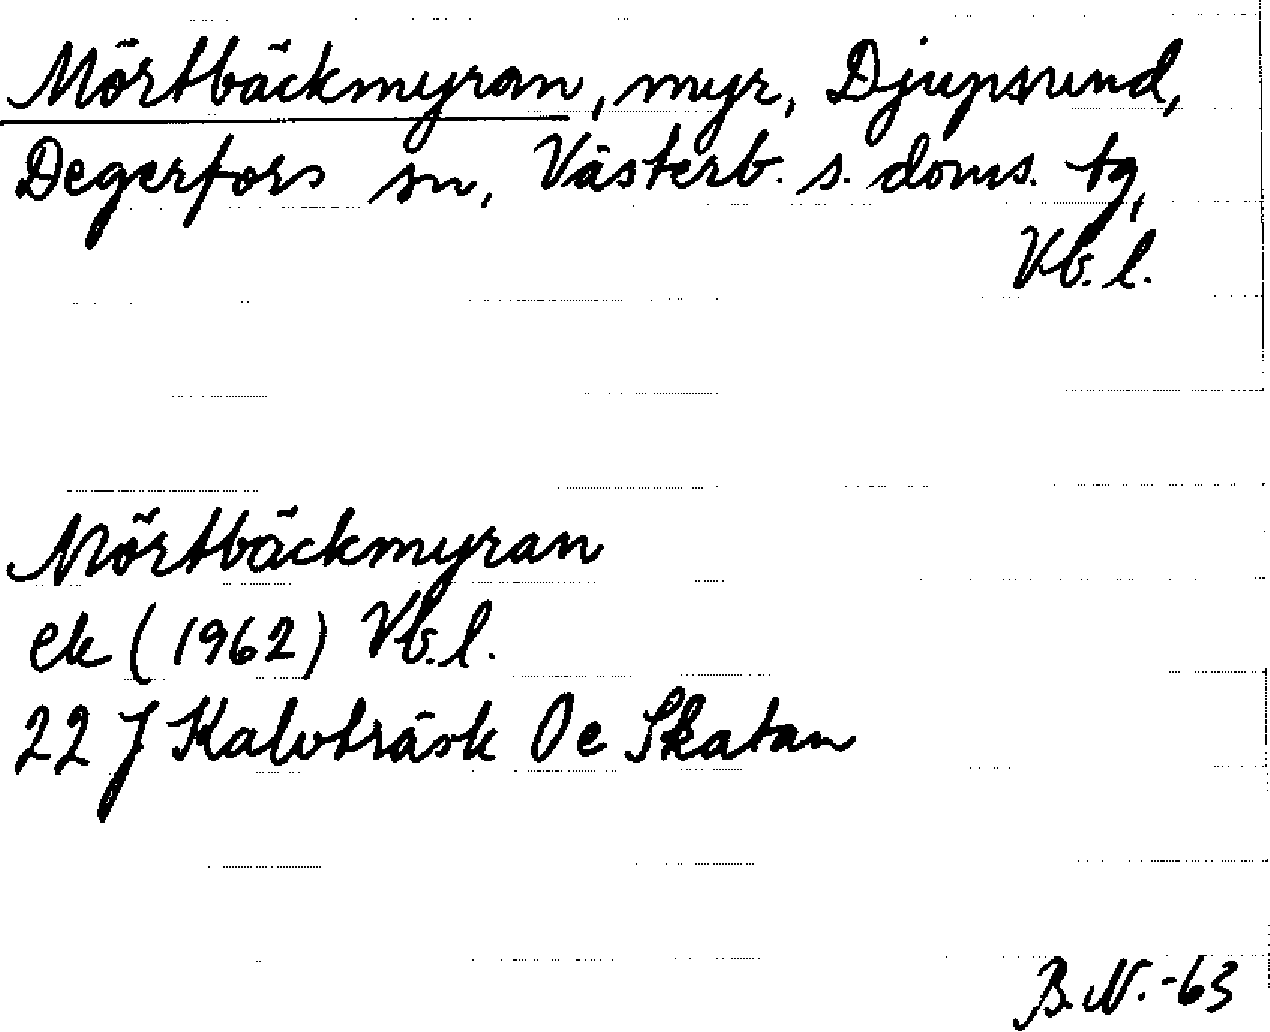 Mörtbäckmyran, myr, Djupsund,
Degerfors sn, Västerb. s. doms. tg,
Vb. l.
Mörtbäckmyran
ek (1962) Vb. l.
22 J Kalvträsk Oe Skatan
B. N. -63